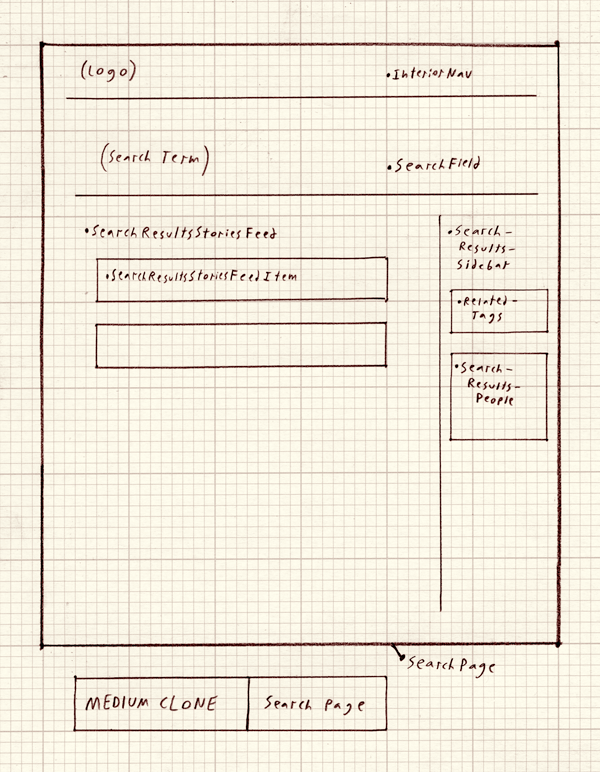 (Logo)
•InteriorNav
(Search Term)
•SearchField
•SearchResultsStoriesFeed
•SearchResultsStoriesFeedItem
•Search-
Results-
Sidebar
•Related-
Tags
•Search-
Results-
People
SearchPage
MEDIUM CLONE
Search Page